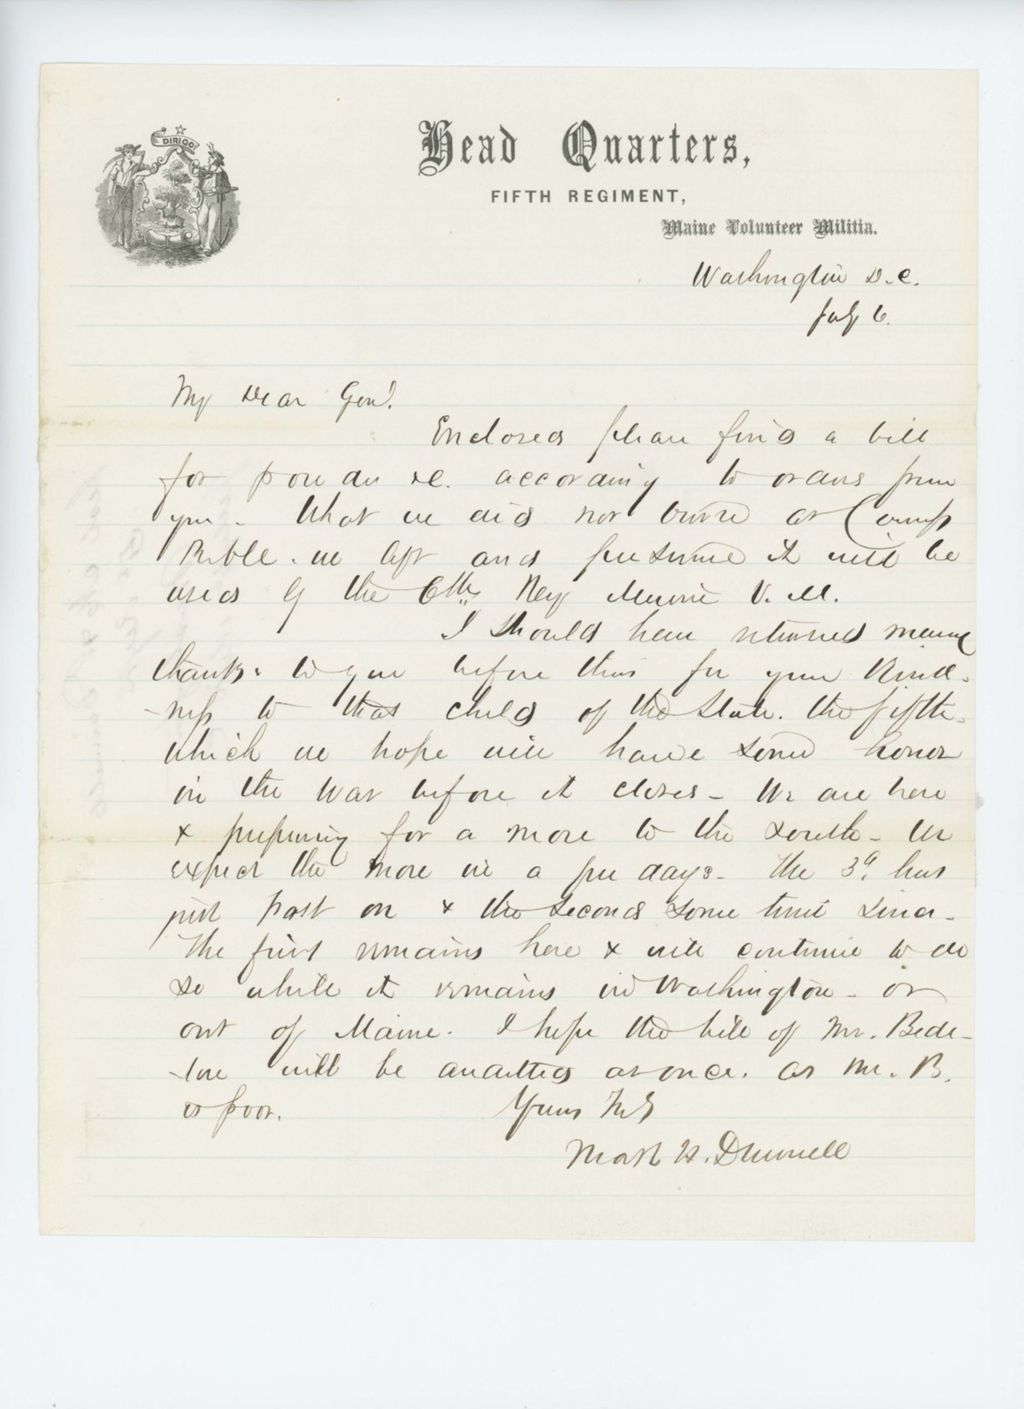 DIRIGO
Head Quarters,
FIFTH REGIMENT,
Maine Volunteer Militia.
Washington D.C.
July 6.
My Dear Genl.
Enclosed please find a bill
for powder &c. according to orders from
you. What we did not burn at Camp
Preble. we left and presume it will be
used by the 6th Reg Maine V. M.
I should have returned many
thanks to you before this for your kind-
-ness to that child of the State. the fifth.
which we hope will have some honor
in the war before it closes - We are here
& preparing for a move to the South - We
expect the move in a few days - The 3d. has
just past on & the Second some time since -
The first remains here & will continue to do
so while it remains in Washington - or
out of Maine. I hope the bill of Mr. Bede-
-low will be audited at once. as Mr. B.
is poor. Yours Truly
Mark H. Dunnell